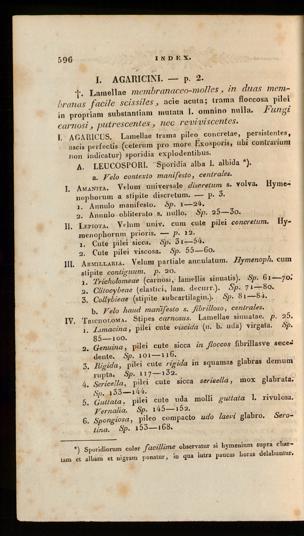 596 INDEX.
I. AGARICINI. — p. 2.
†. Lamellae membranaceo-molles, in duas mem-
branas facile scissiles, acie acuta; trama floccosa pilei
in propriam substantiam mutata l. omnino nulla. Fungi
carnosi, putrescentes, nec reviviscentes.
I. AGARICUS. Lamellae trama pilei concretae, persistentes,
accis perfectis (ceterum pro more Exosporis, ubi contravium
non indicatur) sporidia explodentibus.
A. LEUCOSPORI. Sporidia alba l. albida *).
a. Velo contexto manifesto, centrales.
I. AMANITA. Velum universale discretum s. volva. Hyme-
nophorum a stipite discretum. — p. 3.
1. Annulo manifesto. Sp. 1—24.
2. Annulo obliterato s. nullo. Sp. 25—30.
II. LEPIOTA. Velum univ. cum cute pilei concretum. Hy-
menophorum prioris. — p. 12.
1. Cute pilei sicca. Sp. 31—54.
2. Cute pilei viscosa. Sp. 55—60.
III. ARMILLARIA. Velum partiale annulatum. Hymenoph. cum
stipite contiguum. p. 20.
1. Tricholomeae (carnosi, lamellis sinuatis). Sp. 61—70.
2. Clitocybeae (elastici, lam. decurr.). Sp. 71—80.
3. Collybieae (stipite subcartilagin.). Sp. 81—84.
b. Velo haud manifesto s. fibrilloso, centrales.
IV. TRICHOLOMA. Stipes carnosus. Lamellae sinuatae. p. 25.
1. Limacina, pilei cute viscida (n. b. uda) virgata. Sp.
85—100.
2. Genuina, pilei cute sicca in floccos fibrillasve sece-
dente. Sp. 101—116.
3. Rigida, pilei cute rigida in squamas glabras demum
rupta. Sp. 117—132.
4. Sericella, pilei cute sicca sericella, mox glabrata.
Sp. 133—144.
5. Guttata, pilei cute uda molli guttata l. rivulosa.
Vernalia. Sp. 145—152.
6. Spongiosa, pileo compacto udo laevi glabro. Sero-
tina. Sp. 153—168.
*) Sporidiorum color facillime observatur si hymenium supra char-
tam et albam et nigram ponatur, in qua intra paucas horas delabuntur.